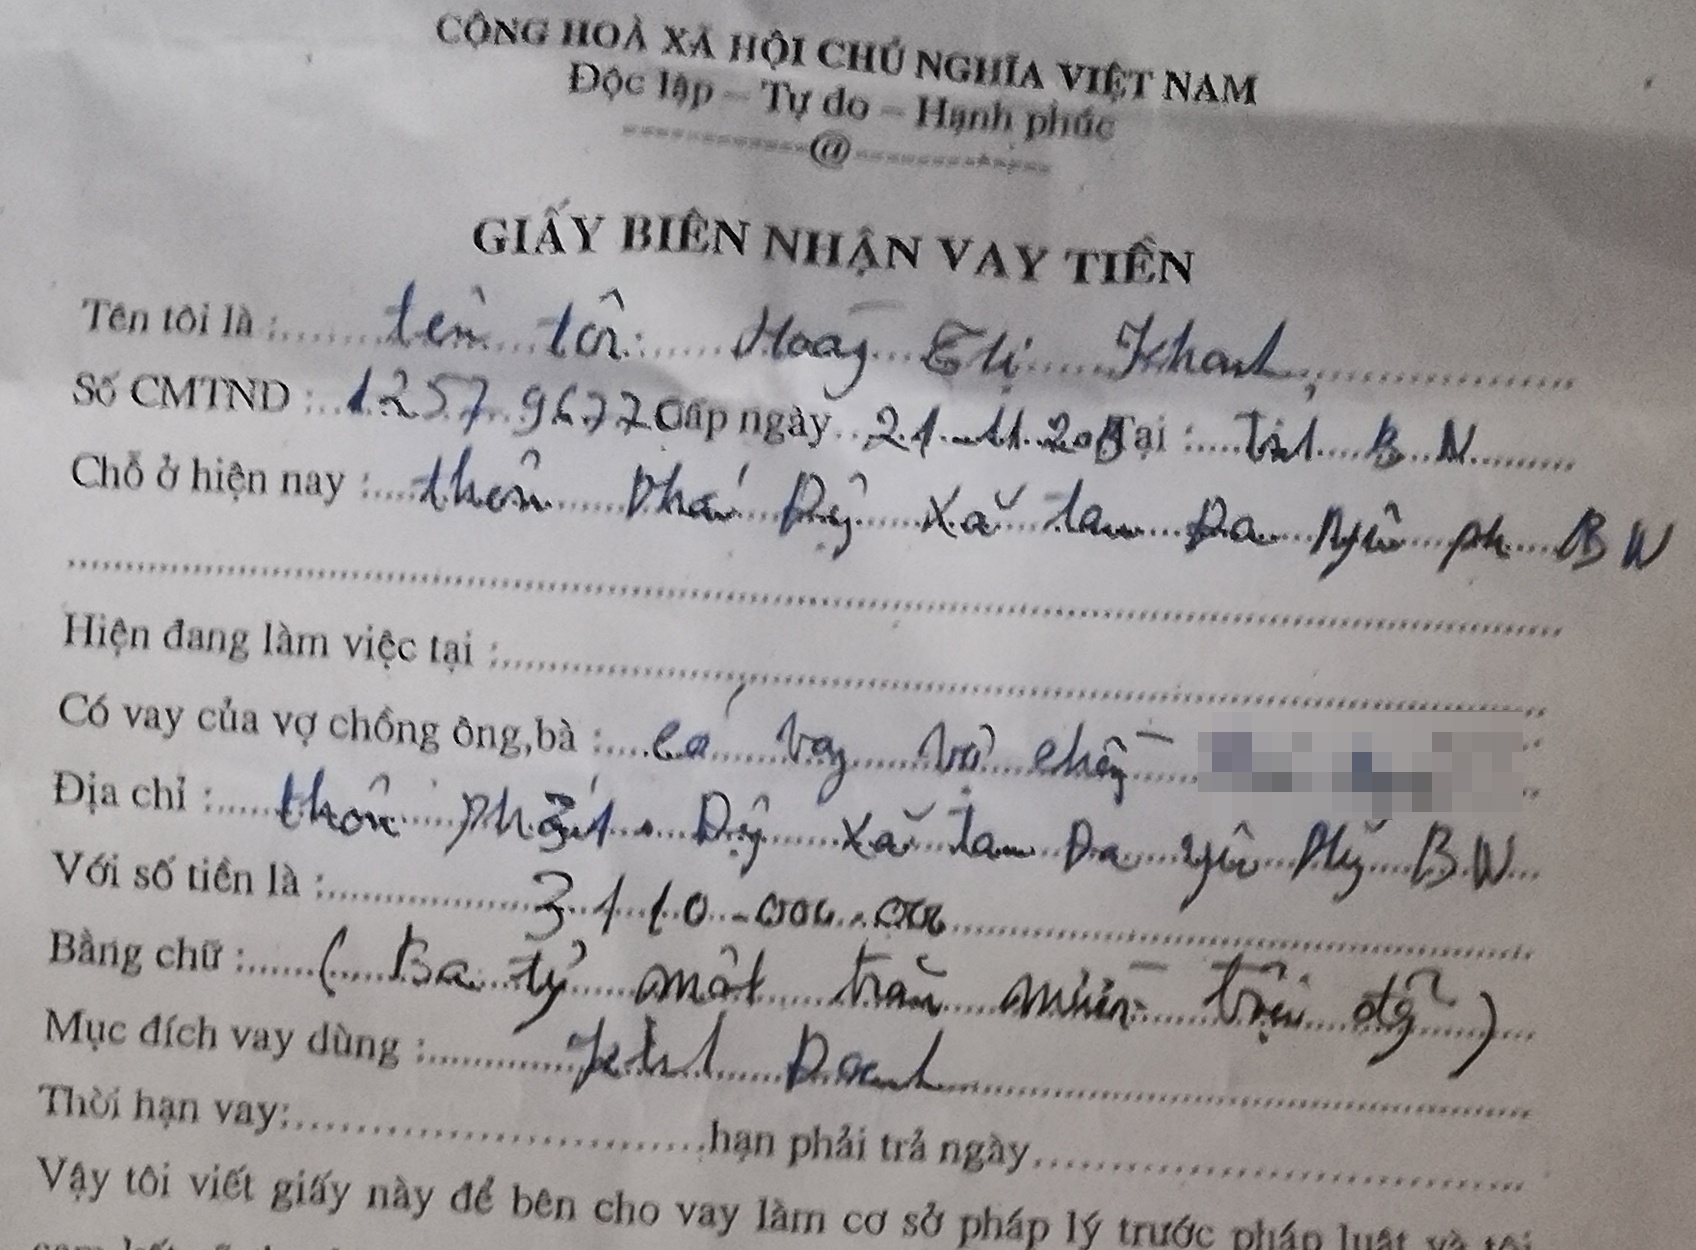 CỘNG HOÀ XÃ HỘI CHỦ NGHĨA VIỆT NAM
Độc lập – Tự do – Hạnh phúc
----------@----------
GIẤY BIÊN NHẬN VAY TIỀN
Tên tôi là : tên tôi: Hoàng Thị Khanh,
Số CMTND : 125796770 Cấp ngày 21.11.20 Tại : Tỉnh BN
Chỗ ở hiện nay : thôn Phấn Động xã tam Đa Yên ph BN
Hiện đang làm việc tại :
Có vay của vợ chồng ông,bà : có vay vợ chồng
Địa chỉ : thôn Động xã tam Đa yên BN
Với số tiền là : 3110.000.000
Bằng chữ : (Ba tỷ một trăm mười triệu đồng)
Mục đích vay dùng : Kinh Doanh
Thời hạn vay: hạn phải trả ngày
Vậy tôi viết giấy này để bên cho vay làm cơ sở pháp lý trước pháp luật và tôi